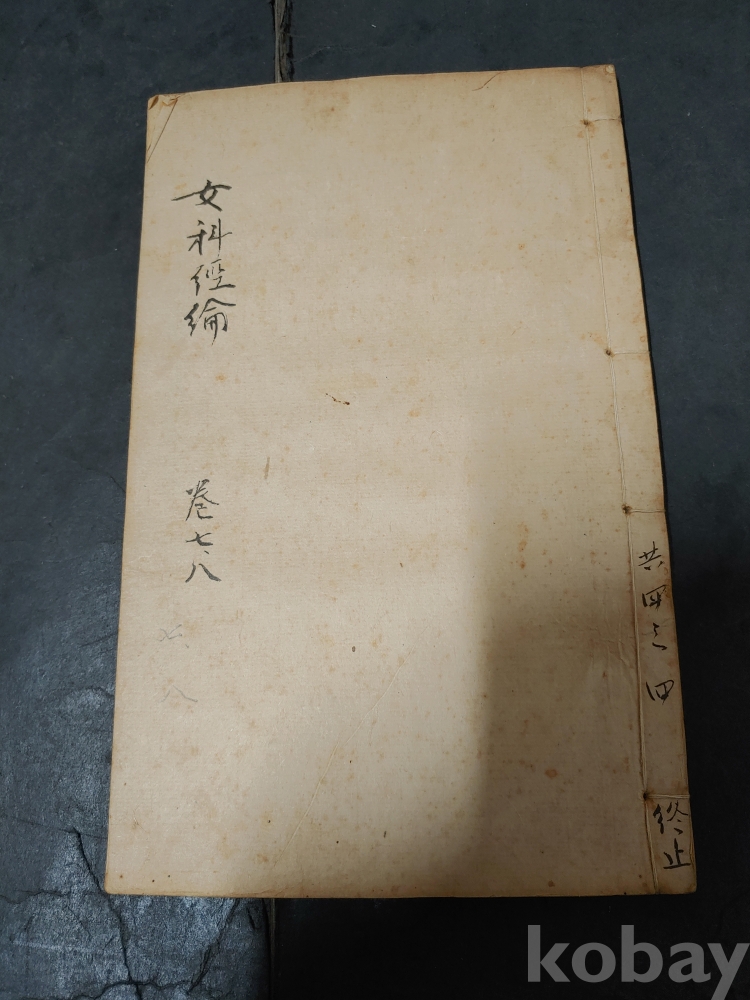 女科經綸
卷七、八
七、八
共四之四
終止
kobay